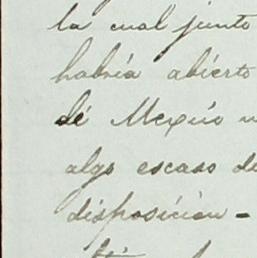 la cual junto
habría abierto
de Mexico
algo escaso de
disposición -